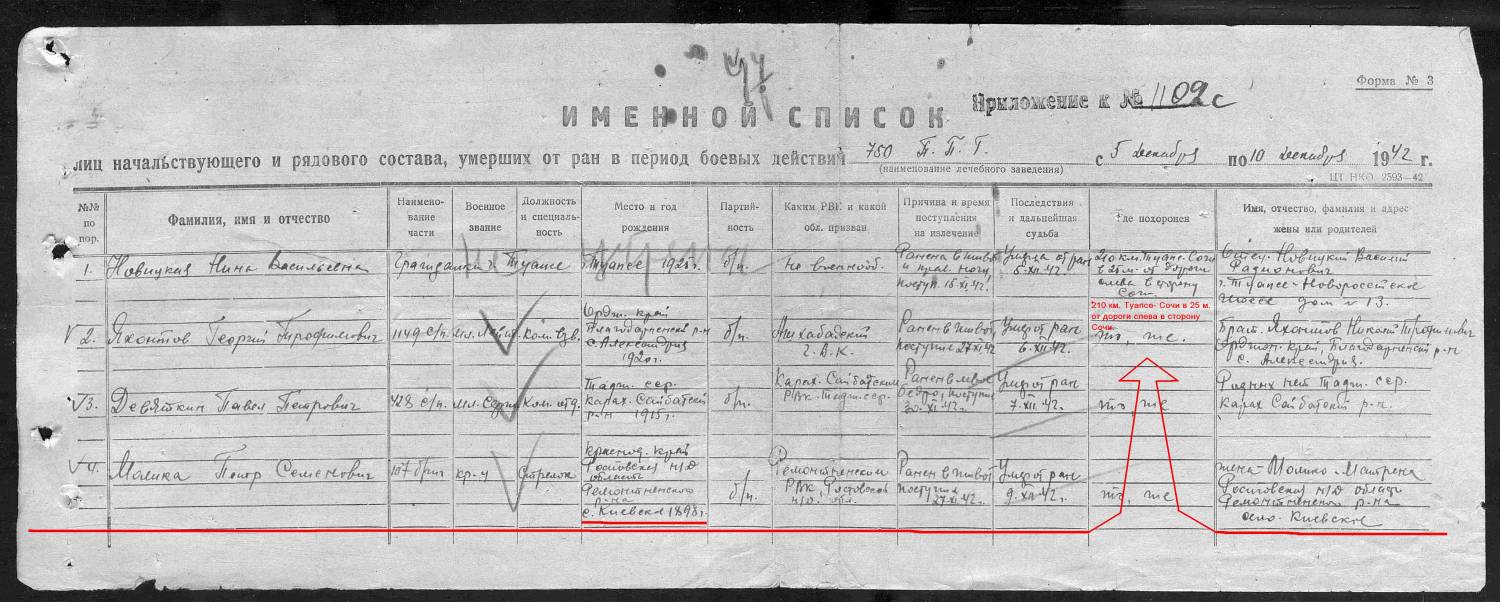 Форма № 3
Приложение к № 1109с
ИМЕННОЙ СПИСОК
лиц начальствующего и рядового состава, умерших от ран в период боевых действий 750 П.П.Г. с 5 декабря по 10 декабря 1942 г.
(наименование лечебного заведения)
ЦТ НКО 2593—42
№№ по пор.
Фамилия, имя и отчество
Наимено-
вание
части
Военное
звание
Должность
и специаль-
ность
Место и год
рождения
Партий-
ность
Каким РВК и какой
обл. призван
Причина и время
поступления
на излечение
Последствия
и дальнейшая
судьба
Где похоронен
Имя, отчество, фамилия и адрес
жены или родителей
1. Новицкая Нина Васильевна
Гражданка г. Туапсе
г. Туапсе 1925г.
б/п.
не военнооб.
Ранена в живот
и прав. ногу,
поступ. 15.XI.42.
Умерла от ран
5.XII.42.
210 км. Туапсе-Сочи
в 25 м. от дороги
слева в сторону
Сочи
Отец. Новицкий Василий
г. Туапсе-Новороссийское
шоссе дом № 13.
210 км. Туапсе- Сочи в 25 м.
от дороги слева в сторону
Сочи
2. Яхонтов Георгий Трофимович
1149 с/п.
мл. Лейт.
Ком. взв.
Ордж. край
Благодарненск р-н
с. Александрия
1920г.
б/п.
Ашхабадский
Г.В.К.
Ранен в живот
поступил 27.XI.42
Умер от ран
6.XII.42.
то, же.
Брат. Яхонтов Николай Трофимович
Орджон. край, Благодарненский р-н
с. Александрия.
3. Девяткин Павел Петрович
428 с/п.
мл. Серж
Ком. отд.
Тадж. сср.
р-н 1915г.
б/п.
РВК. Тадж. сср.
Умер от ран
7.XII.42.
то, же
Родных нет Тадж. сср.
4. Молика Петр Семенович
107 бриг
кр-ц
Стрелок
Краснод. край
Ростовская н/Д
область
Ремонтненского
р-на
с. Киевское 1898г.
б/п.
Ремонтненским
РВК, Ростовской
н/Д. обл.
Ранен в живот
поступил
27.XI.42.
Умер от ран
9.XII.42г.
то, же
жена-Молико-Матрена
Ростовская н/Д области
Ремонтненского р-на
село-Киевское